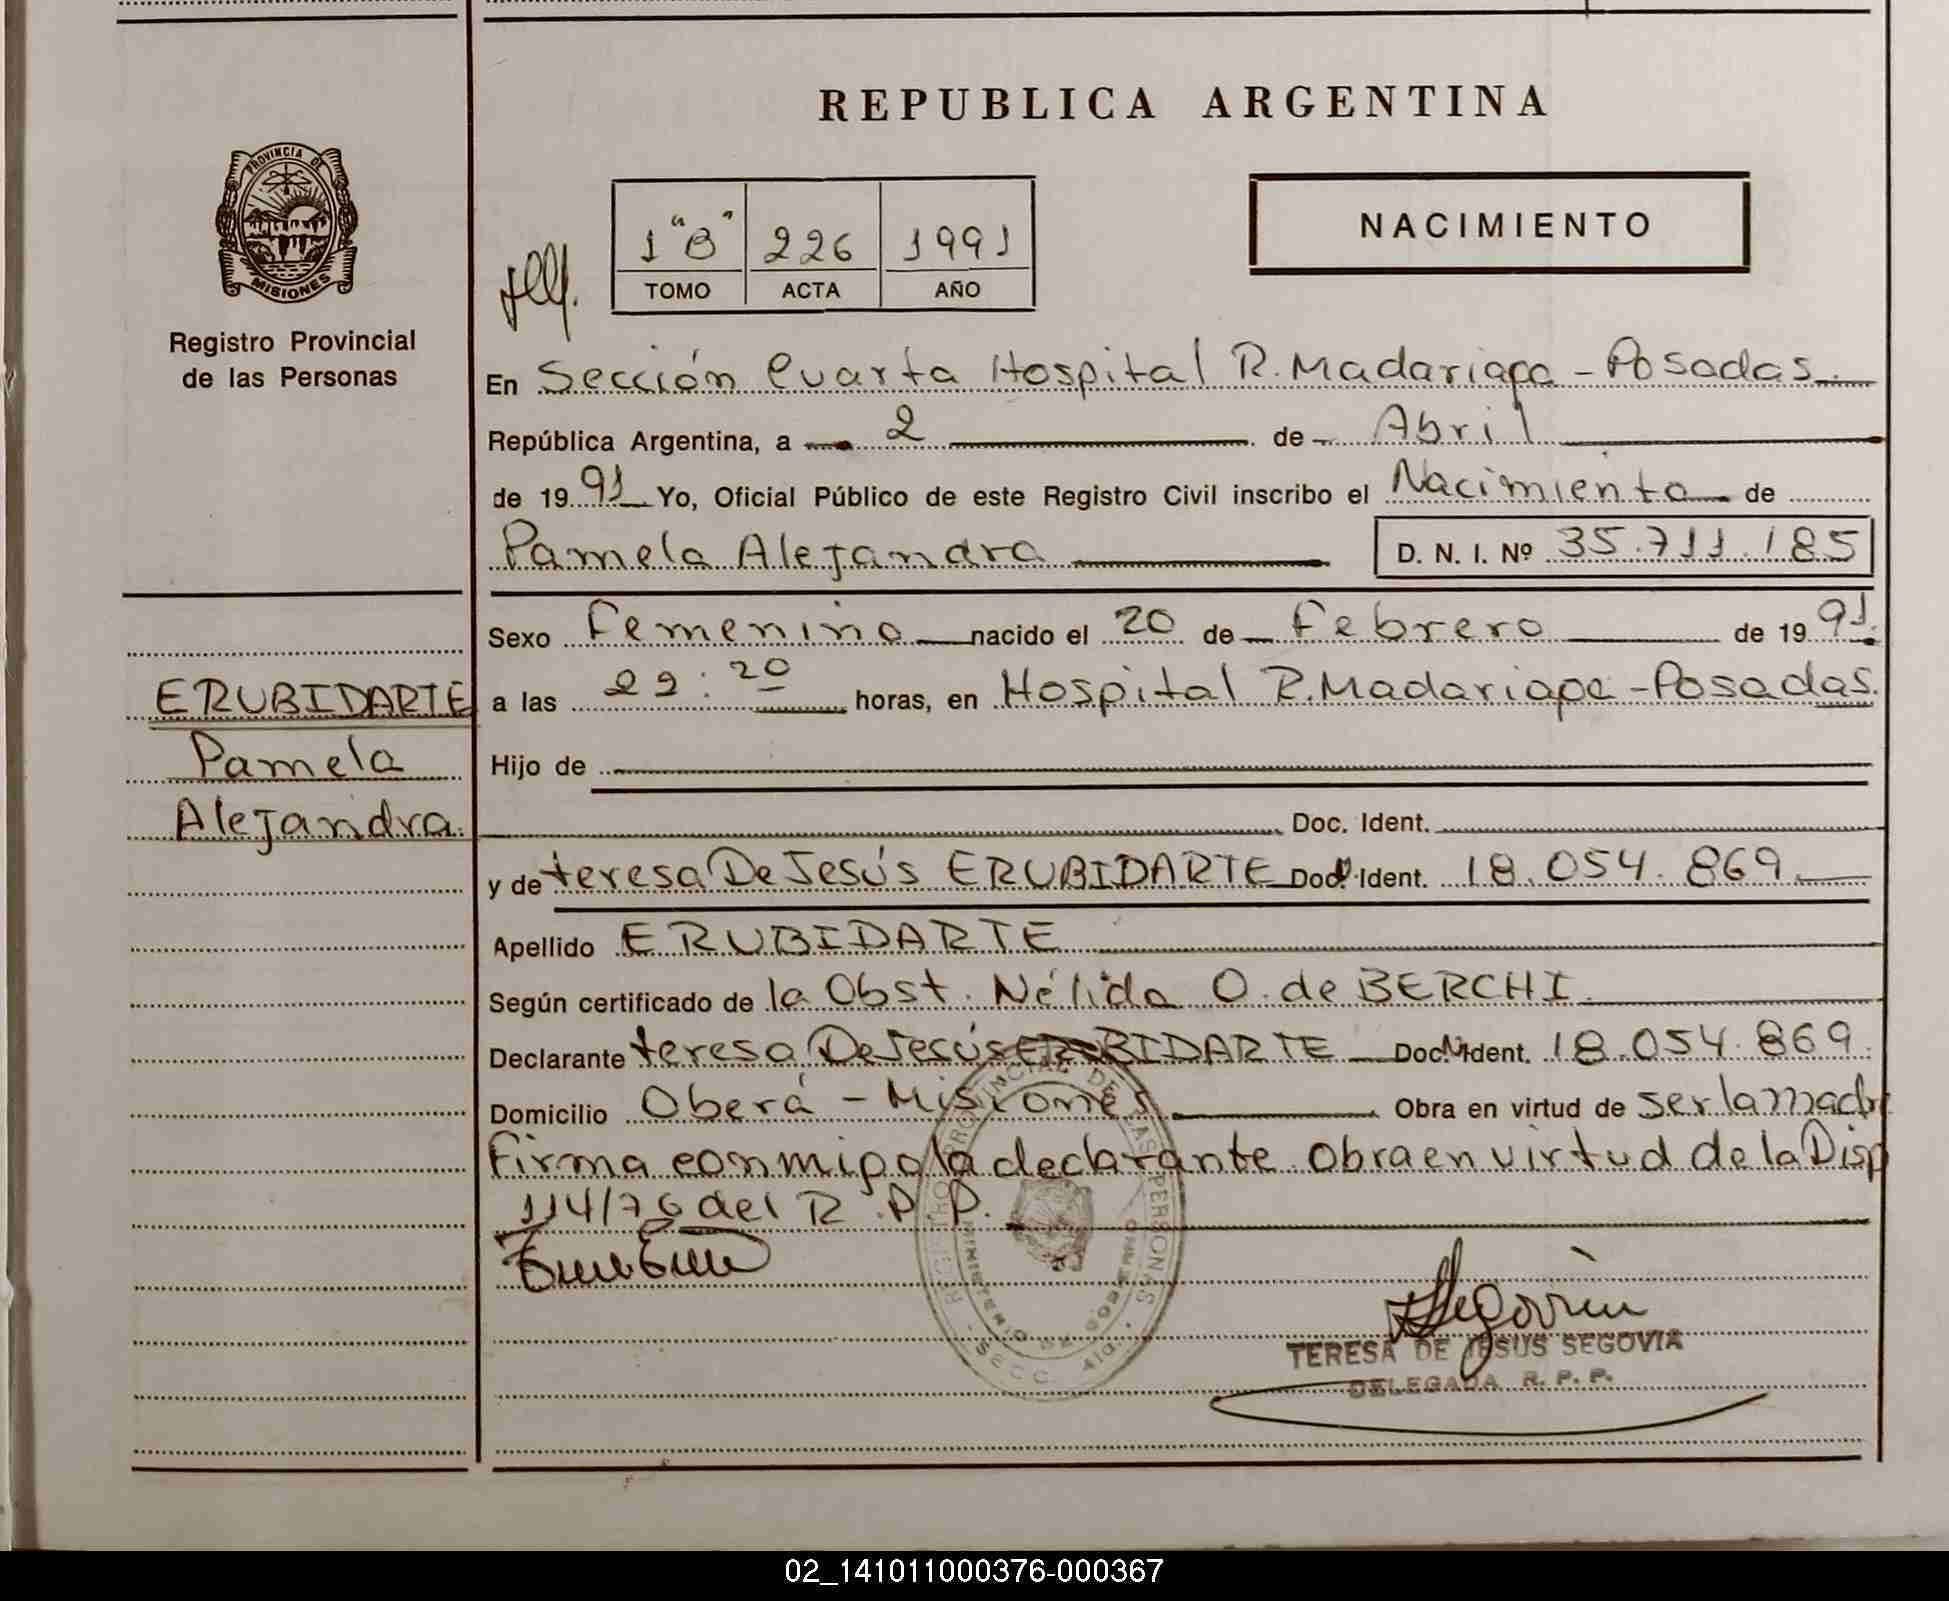 REPUBLICA ARGENTINA
PROVINCIA DE
MISIONES
Registro Provincial
de las Personas
1 "B" 226 1991
TOMO ACTA AÑO
NACIMIENTO
En Sección Cuarta Hospital R. Madariaga - Posadas.
República Argentina, a 2 de Abril
de 19 91 Yo, Oficial Público de este Registro Civil inscribo el Nacimiento de
Pamela Alejandra D. N. I. Nº 35.711.185
Sexo Femenino nacido el 20 de Febrero de 19 91.
ERUBIDARTE
Pamela
Alejandra.
a las 22:20 horas, en Hospital R. Madariaga - Posadas.
Hijo de
Doc. Ident.
y de teresa De Jesús ERUBIDARTE Doc. Ident. 18.054.869
Apellido ERUBIDARTE
Según certificado de la Obst. Nélida O. de BERCHI.
Declarante teresa De Jesús ERUBIDARTE Doc. Ident. 18.054.869.
Domicilio Oberá - Misiones Obra en virtud de ser la madre
Firma conmigo la declarante. Obra en virtud de la Disp
114/76 del R.P.P.
REGISTRO PROVINCIAL DE LAS PERSONAS
MINISTERIO DE GOBIERNO
- SECC. 4ta. -
Segovia
TERESA DE JESUS SEGOVIA
DELEGADA R. P. P.
02_141011000376-000367